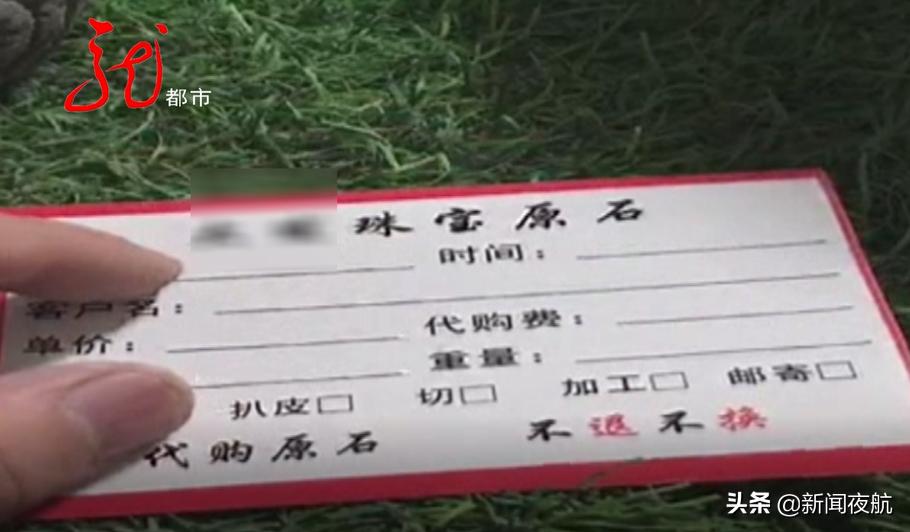 龙
都市
珠宝原石
时间：
客户名：
单价： 代购费：
重量：
扒皮□ 切□ 加工□ 邮寄□
代购原石 不退不换
头条 @新闻夜航